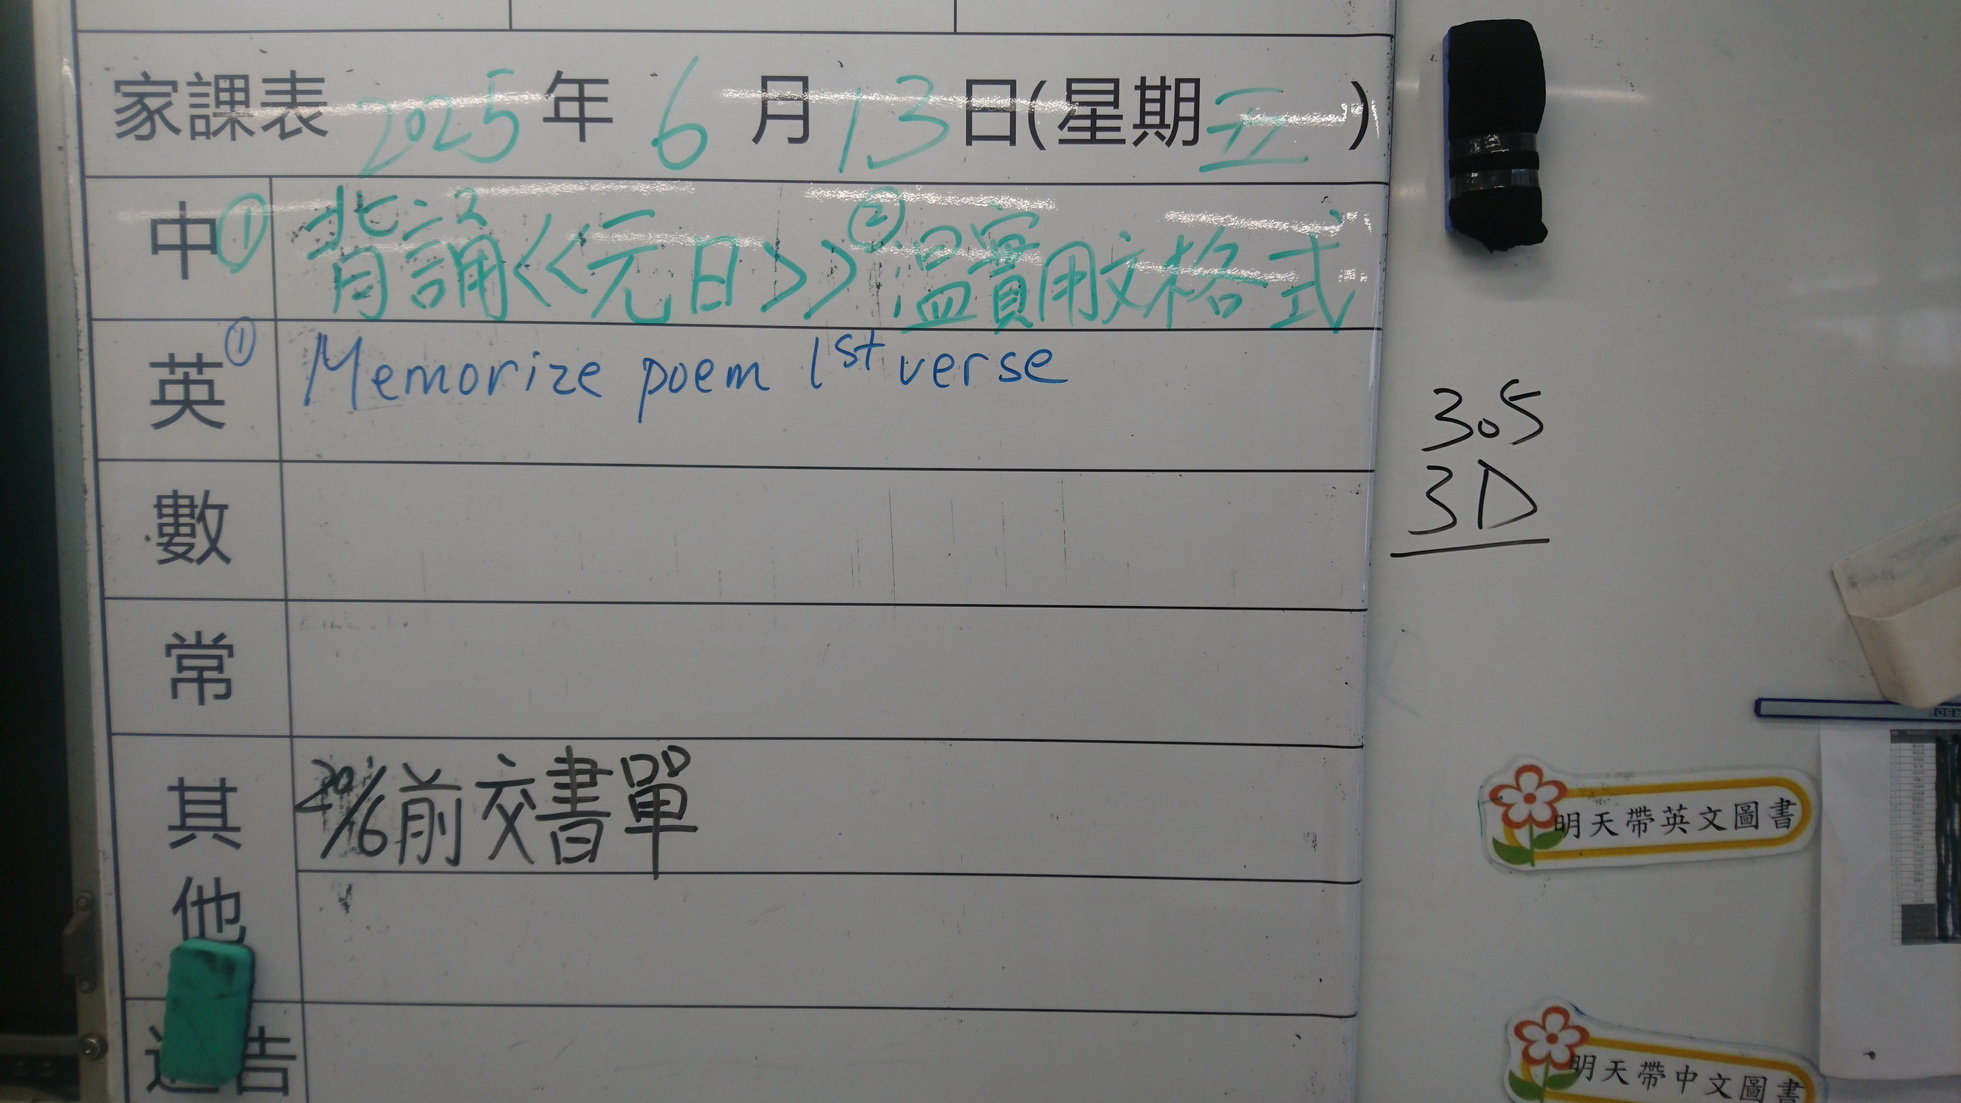 家課表 2025 年 6 月 13 日(星期 五 )
中 ① 背誦《元日》 ② 溫實用文格式
英 ① Memorize poem 1st verse
數
常
其他
20/6前交書單
告
305
3D
明天帶英文圖書
明天帶中文圖書